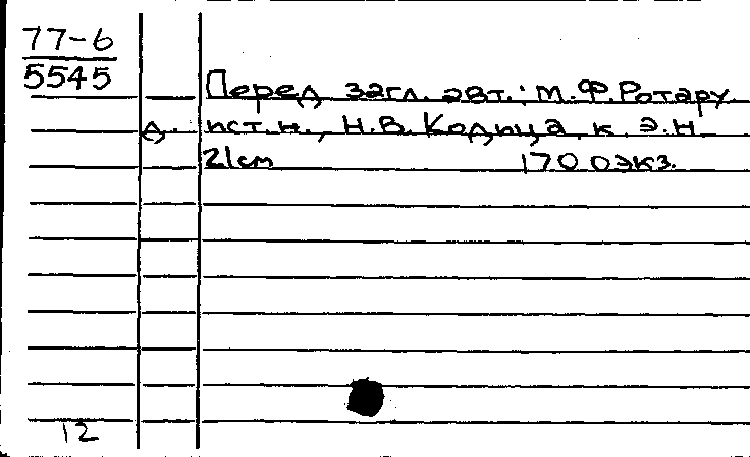 77-6
5545
Перед загл. авт.: М.Ф. Ротару
д. ист. н., Н.В. Кодица, к. э. н.
21 см 1700экз.
12